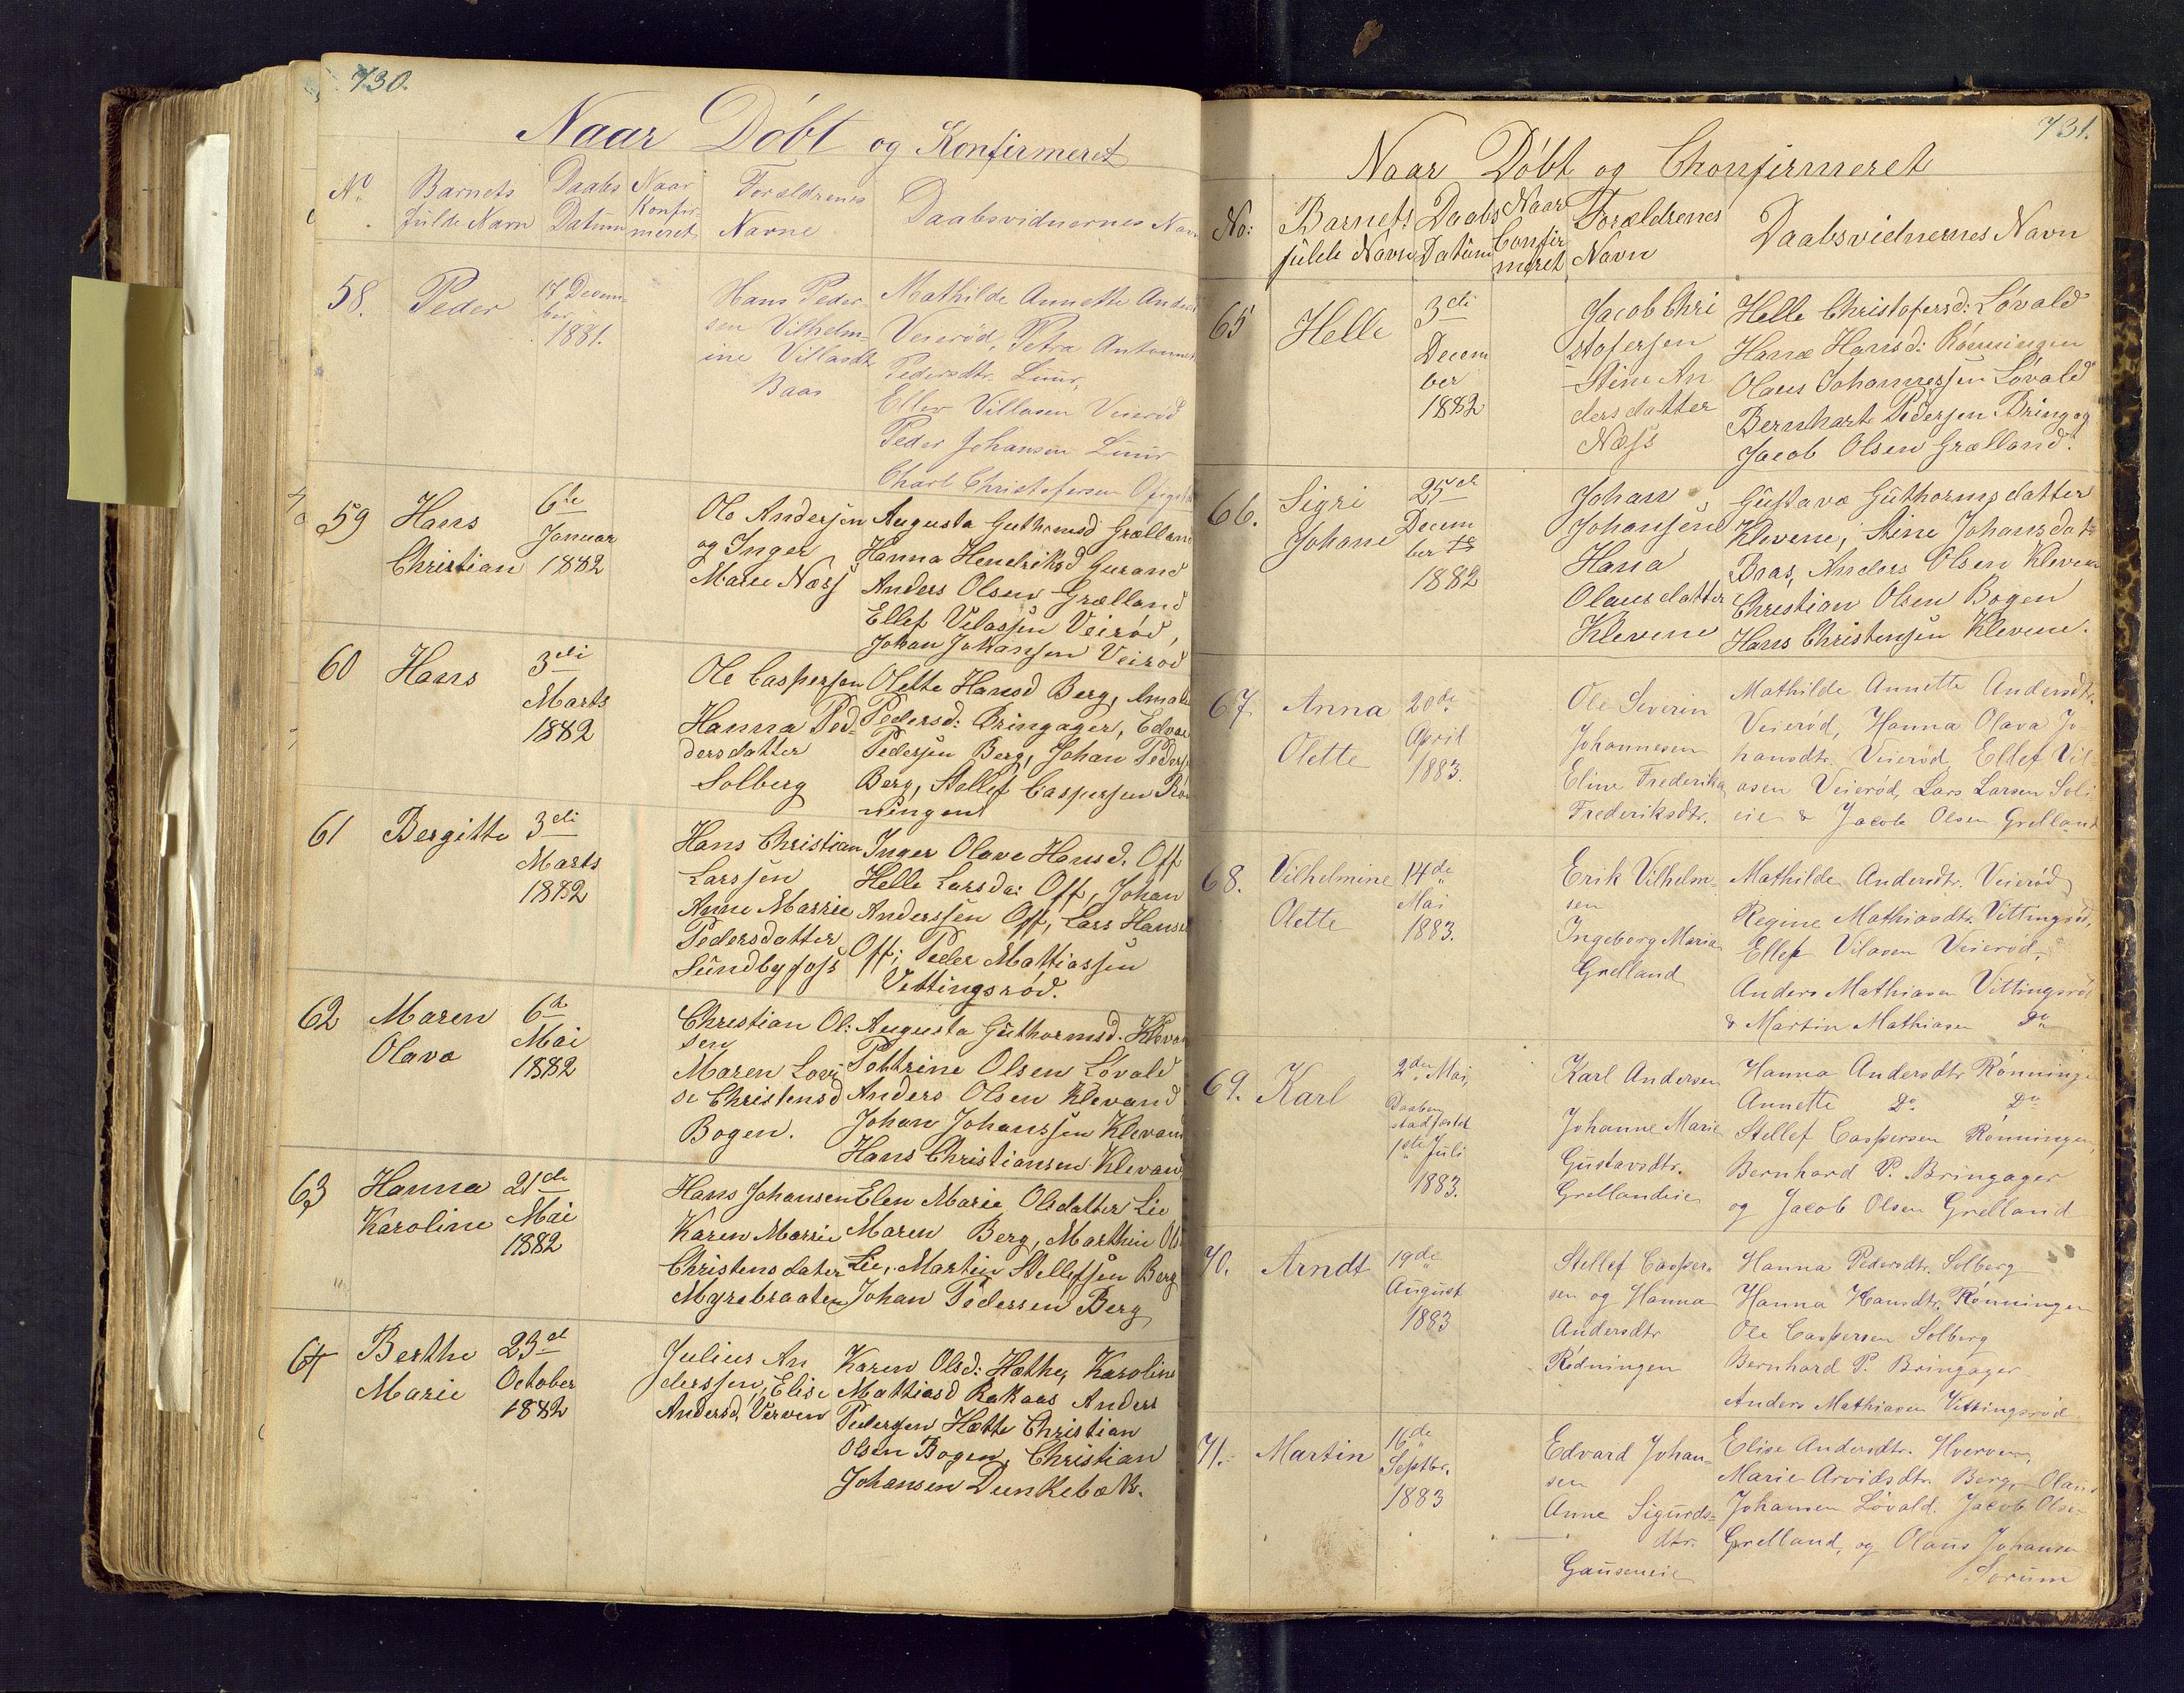 730.
Naar Döbt og Konfirmeret
No. Barnets fulde Navn
Daabs Datum
Naar Konfirmeret
Forældrenes Navne
Daabsvidnernes Navn
58. Peder
17 Decem-
ber
1881.
Hans Peder-
sen Vilhelm-
ine Villasdtr
Baas
Mathilde Annette Anders
Veieröd, Petra Antonnet
Pedersdtr. Luur,
Ellev Villasen Veieröd
Peder Johansen Luur
Charl Christofersen
59 Hans
Christian
6te
Januar
1882
Ole Andersen
og Inger
Marie Næss
Augusta Guthormsd Grælland
Hanna Hendriksd Gurand
Anders Olsen Grælland
Ellef Velassen Veiröd,
Johan Johansen Veiröd
60 Hans
3die
Marts
1882
Ole Caspersen
Hanna Ped-
dersdatter
Solberg
Olette Hansd Berg, Amalie
Pedersd: Bringager, Edvar
Pedersen Berg, Johan Peders
Berg, Stellef Caspersen Rön
ningen
61 Bergitte
3die
Marts
1882
Hans Christian
Larssen
Anne Marrie
Pedersdatter
Sundbyfoss
Inger Olave Hansd. Off
Helle Larsda: Off, Johan
Anderssen Off, Lars Hanse
Off; Peder Mattiassen
Vettingsröd.
62 Maren
Olava
6te
Mai
1882
Christian Ol:
sen
Maren Lovi
se Christensd
Bogen.
Augusta Guthormsd. Klevan
Pettrine Olsen Lövald
Anders Olsen Klevand
Johan Johanssen Klevan
Hans Christiansen Klevan
63 Hanna
Karoline
21de
Mai
1882
Hans Johansen
Karen Marrie
Christensdater
Myrebraaten
Elen Marie Olsdatter Lie
Maren Berg, Marthin Ols
Lie, Martin Stellefsen Berg
Johan Pedersen Berg
64 Berthe
Marie
23de
October
1882
Julius An
derssen, Elise
Andersd, Verven
Karen Olsd: Hæthe, Karoline
Mattiasd Rakaas Anders
Pedersen Hætte Christian
Olsen Bogen, Christian
Johansen Dunkebæk.
731.
Naar Döbt og Chonfirmeret
No: Barnets fulde Navn
Daabs Datum
Naar Confirmeret
Forældrenes Navn
Daabsvidnernes Navn
65 Helle
3die
Decem
ber
1882
Jacob Chri
stofersen
Stine An
dersdatter
Næss
Helle Christofersd: Lövald
Hana Hansd: Rönningen
Olaus Johannessen Lövald
Bernhart Pedersen Bringag
Jacob Olsen Grælland.
66. Sigri
Johane
25de
Decem
ber
1882
Johan
Johansen
Hana
Olausdatter
Klevene
Gustava Guthormsdatter
Klevene, Stine Johansdatr
Braas, Anders Olsen Kleven
Christian Olsen Bogen
Hans Christensen Klevene.
67. Anna
Olette
20de
April
1883.
Ole Severin
Johannesen
Eline Frederika
Frederiksdtr.
Mathilde Annette Andersdtr.
Veieröd, Hanna Olava Jo-
hansdtr. Veieröd, Ellef Vil-
asen Veieröd, Lars Larsen Soli
eie & Jacob Olsen Grelland
68. Vilhelmine
Olette
14de
Mai
1883.
Erik Vilhelm-
sen
Ingeborg Maria
Grelland
Mathilde Andersdtr. Veieröd
Regine Mathiasdtr. Vittingsröd,
Ellef Vilasen Veieröd,
Anders Mathiasen Vittingsröd
& Martin Mathiasen Do
69. Karl
2den Mai,
Daaben
stadfæstet
1ste Juli
1883.
Karl Andersen
Johanne Marie
Gustavsdtr.
Grellandeie
Hanna Andersdtr Rönninge
Annette Do. Do
Stellef Caspersen Rönningen,
Bernhard P. Bringager
og Jacob Olsen Grelland
70. Arndt
19de
August
1883
Stellef Casper-
sen og Hanna
Andersdtr
Rödningen
Hanna Pedersdtr. Solberg
Hanna Hansdtr. Rönningen
Ole Caspersen Solberg
Bernhard P. Bringager
Anders Mathiasen Vettingsröd
71. Martin
16de
Septbr.
1883
Edvard Johan-
sen
Anne Sigurds-
dtr.
Gauseneie
Elise Andersdtr. Hverven,
Marie Arvidsdtr. Berg, Olaus
Johansen Lövald. Jacob Olsen
Grelland, og Olaus Johansen
Sorum